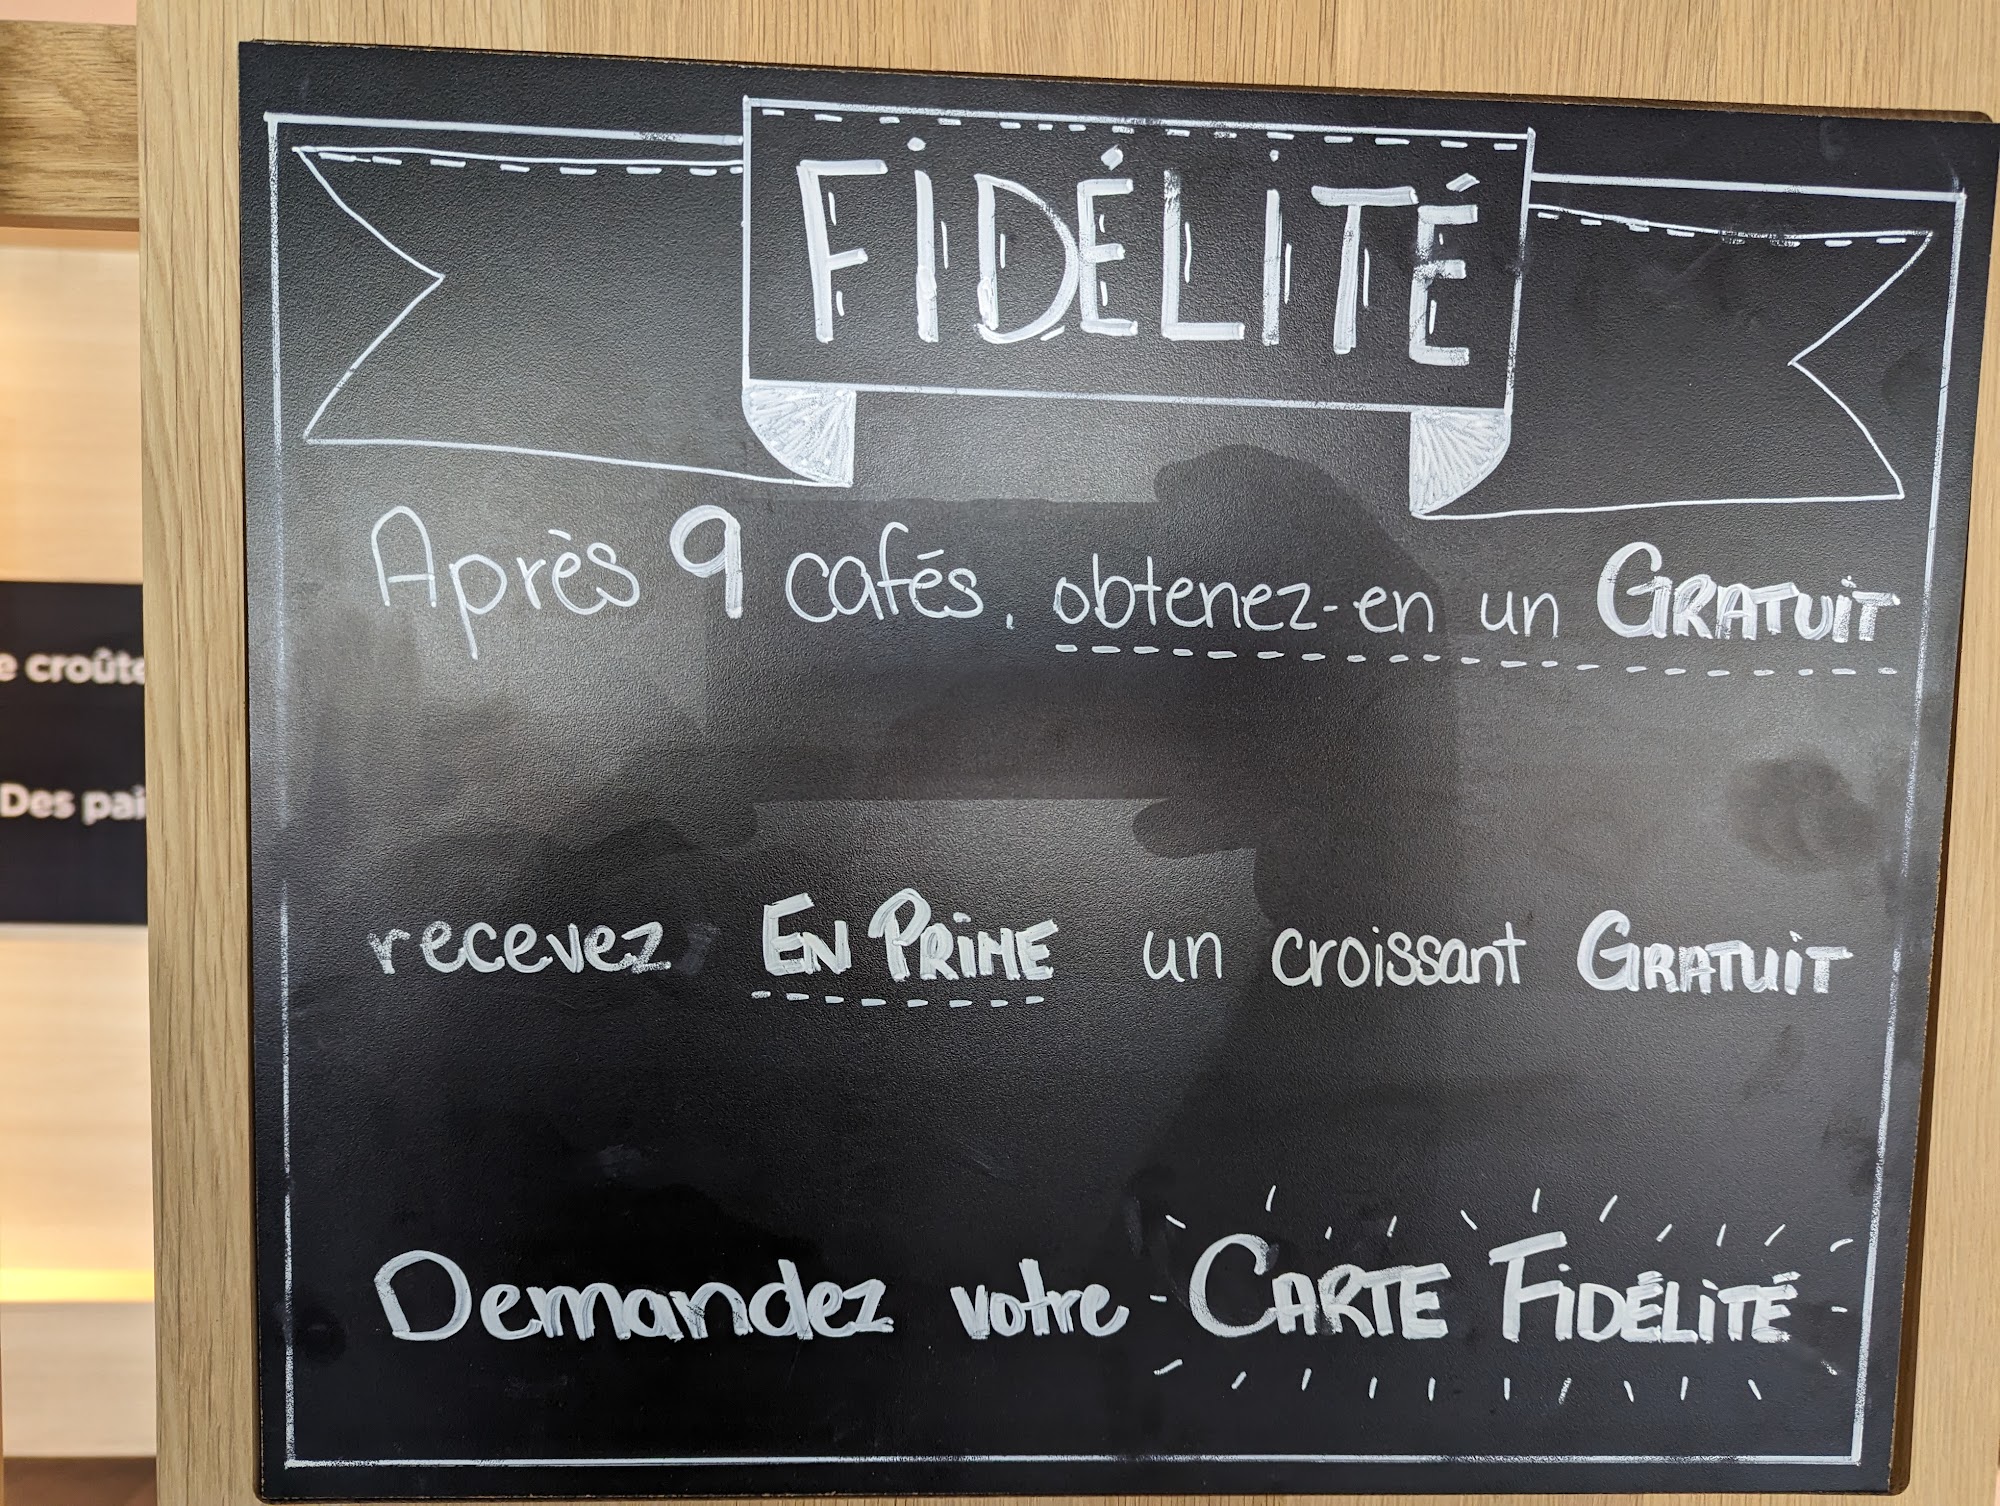 FIDÉLITÉ
Après 9 cafés, obtenez-en un GRATUIT
recevez EN PRIME un croissant GRATUIT
Demandez votre CARTE FIDÉLITÉ
e croûte
Des pai